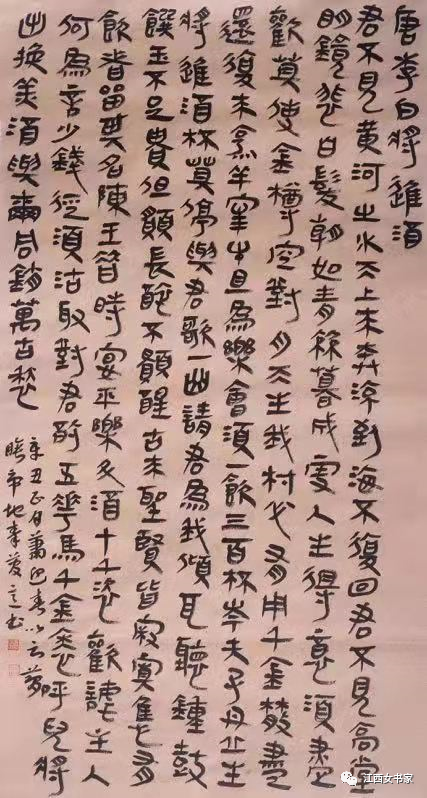 唐李白將進酒
君不見黃河之水天上來奔流到海不復回君不見高堂
明鏡悲白髮朝如青絲暮成雪人生得意須盡
歡莫使金樽空對月天生我材必有用千金散盡
還復來烹羊宰牛且為樂會須一飲三百杯岑夫子丹丘生
將進酒杯莫停與君歌一曲請君為我傾耳聽鐘鼓
饌玉不足貴但願長醉不願醒古來聖賢皆寂寞隹有
飲者留其名陳王昔時宴平樂斗酒十千恣歡謔主人
何為言少錢徑須沽取對君酌五花馬千金裘呼兒將
出換美酒與爾同銷萬古愁
辛丑正月蕭迎春以云夢
睡虎地秦簡意書
江西女书家